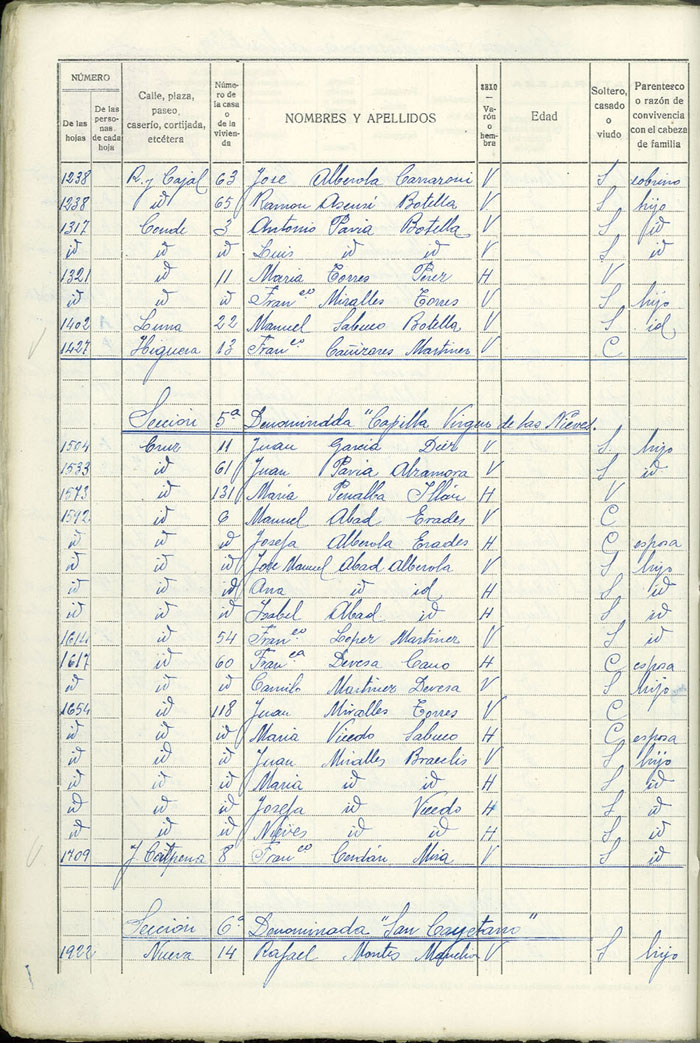 NÚMERO
De las hojas
De las personas de cada hoja
Calle, plaza, paseo caserío, cortijada, etcétera
Número de la casa o de la vivienda
NOMBRES Y APELLIDOS
SEXO — Varón o hembra
Edad
Soltero, casado o viudo
Parentesco o razón de convivencia con el cabeza de familia
1238 R. y Cajal 63 Jose Alberola Carraroni V S sobrino
1238 id 65 Ramon Asensi Botella V S hijo
1317 Conde 3 Antonio Pavia Botella V S id
id id id Luis id id V S id
1321 id 11 Maria Torres Perez H V
id id id Fran.co Miralles Torres V S hijo
1402 Luna 22 Manuel Sabuco Botella V S id
1427 Higuera 13 Fran.co Cañizares Martinez V C
Sección 5ª Denominada "Capilla Virgen de las Nieves.
1504 Cruz 11 Juan Garcia Diez V S. hijo
1533 id 61 Juan Pavia Abramora V S id
1573 id 131 Maria Penalba Illán H V
1592 id 6 Manuel Abad Erades V C
id id id Josefa Alberola Erades H C esposa
id id id Jose Manuel Abad Alberola V S hijo
id id id Ana id id H S id
id id id Isabel Abad id H S id
1614 id 54 Fran.co Lopez Martinez V S id
1617 id 60 Fran.ca Devesa Cano H C esposa
id id id Camilo Martinez Devesa V S hijo
1654 id 118 Juan Miralles Torres V C
id id id Maria Vicedo Sabuco H C esposa
id id id Juan Miralles V S hijo
id id id Maria id id H S id
id id id Josefa id Vicedo H S id
id id id Nieves id id H S id
1709 J. Catpena 8 Fran.co Cerdán Mira V S id
Sección 6ª Denominada "San Cayetano"
1922 Nueva 14 Rafael Montes V S hijo